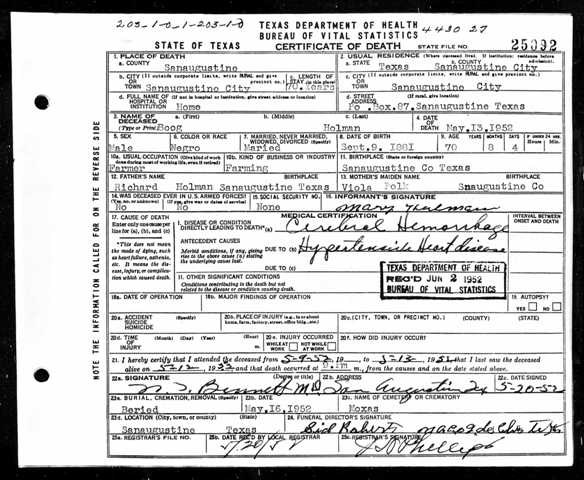 203-1-0-1-203-1-0
TEXAS DEPARTMENT OF HEALTH
BUREAU OF VITAL STATISTICS
4430 27
STATE OF TEXAS
CERTIFICATE OF DEATH
STATE FILE NO. 25092
1. PLACE OF DEATH
a. COUNTY
Sanaugustine
2. USUAL RESIDENCE (Where deceased lived. If institution: residence before admission).
a. STATE
Texas
b. COUNTY
Sanaugustine City
b. CITY (If outside corporate limits, write RURAL and give precinct no.)
OR TOWN Sanaugustine City
c. LENGTH OF STAY (in this place)
70.Years
c. CITY (If outside corporate limits, write RURAL and give precinct no.)
OR TOWN Sanaugustine City
d. FULL NAME OF (If not in hospital or institution, give street address or location)
HOSPITAL OR INSTITUTION
Home
d. STREET ADDRESS (If rural, give location)
Po .Box.87.Sanaugustine Texas
3. NAME OF DECEASED
(Type or Print)
a. (First)
Boog
b. (Middle)
c. (Last)
Holman
4. DATE OF DEATH
May.13.1952
5. SEX
Male
6. COLOR OR RACE
Negro
7. MARRIED, NEVER MARRIED, WIDOWED, DIVORCED (Specify)
Maried
8. DATE OF BIRTH
Sept.9. 1881
9. AGE
YEARS MONTHS DAYS
70 8 4
IF UNDER 24 HRS.
10a. USUAL OCCUPATION (Give kind of work done during most of working life, even if retired)
Farmer
10b. KIND OF BUSINESS OR INDUSTRY
Farming
11. BIRTHPLACE (State or foreign country)
Sanaugustine Co Texas
12. FATHER'S NAME
BIRTHPLACE
Richard Holman Sanaugustine Texas
13. MOTHER'S MAIDEN NAME
BIRTHPLACE
Viola Polk Snaugustine Co
14. WAS DECEASED EVER IN U.S. ARMED FORCES?
No No
15. SOCIAL SECURITY NO.
None
16. INFORMANT'S SIGNATURE
Mary Holman
17. CAUSE OF DEATH
Enter only one cause per line for (a), (b), and (c)
*This does not mean the mode of dying, such as heart failure, asthenia, etc. It means the disease, injury, or complication which caused death.
MEDICAL CERTIFICATION
INTERVAL BETWEEN ONSET AND DEATH
I. DISEASE OR CONDITION DIRECTLY LEADING TO DEATH* (a)
Cerebral Hemorrhage
ANTECEDENT CAUSES
Morbid conditions, if any, giving rise to the above cause (a) stating the underlying cause last.
DUE TO (b)
Hypertensive Heart disease
DUE TO (c)
II. OTHER SIGNIFICANT CONDITIONS
Conditions contributing to the death but not related to the disease or condition causing death.
TEXAS DEPARTMENT OF HEALTH
REC'D JUN 2 1952
BUREAU OF VITAL STATISTICS
18a. DATE OF OPERATION
18b. MAJOR FINDINGS OF OPERATION
19. AUTOPSY
YES NO
20a. ACCIDENT SUICIDE HOMICIDE
20b. PLACE OF INJURY (e.g., in or about home, farm, factory, street, office bldg., etc.)
20c. (CITY, TOWN, OR PRECINCT NO.) (COUNTY) (STATE)
20d. TIME OF INJURY
20e. INJURY OCCURRED
WHILE AT WORK NOT WHILE AT WORK
20f. HOW DID INJURY OCCUR?
21. I hereby certify that I attended the deceased from 5-9-52, 19 to 5-13- 1952, that I last saw the deceased
alive on 5-12- 1952 and that death occurred at m., from the causes and on the date stated above.
22a. SIGNATURE (Degree or title)
Bennett M.D.
22b. ADDRESS
San Augustine Tx
22c. DATE SIGNED
5-20-52
23a. BURIAL, CREMATION, REMOVAL (Specify)
Beried
23b. DATE
May.16.1952
23c. NAME OF CEMETERY OR CREMATORY
Moxas
23d. LOCATION (City) (State)
Sanaugustine Texas
24. FUNERAL DIRECTOR'S SIGNATURE
Sid Roberts
25a. REGISTRAR'S FILE NO.
25b. DATE REC'D BY LOCAL REGISTRAR
5/20/52
25c. REGISTRAR'S SIGNATURE
Phillips
THE INFORMATION CALLED FOR ON THE REVERSE SIDE